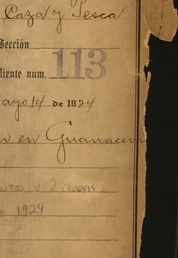 Caza y Pesca
Sección
diente núm. 113
ayo 14 de 1924
en Guanacev
2
1924